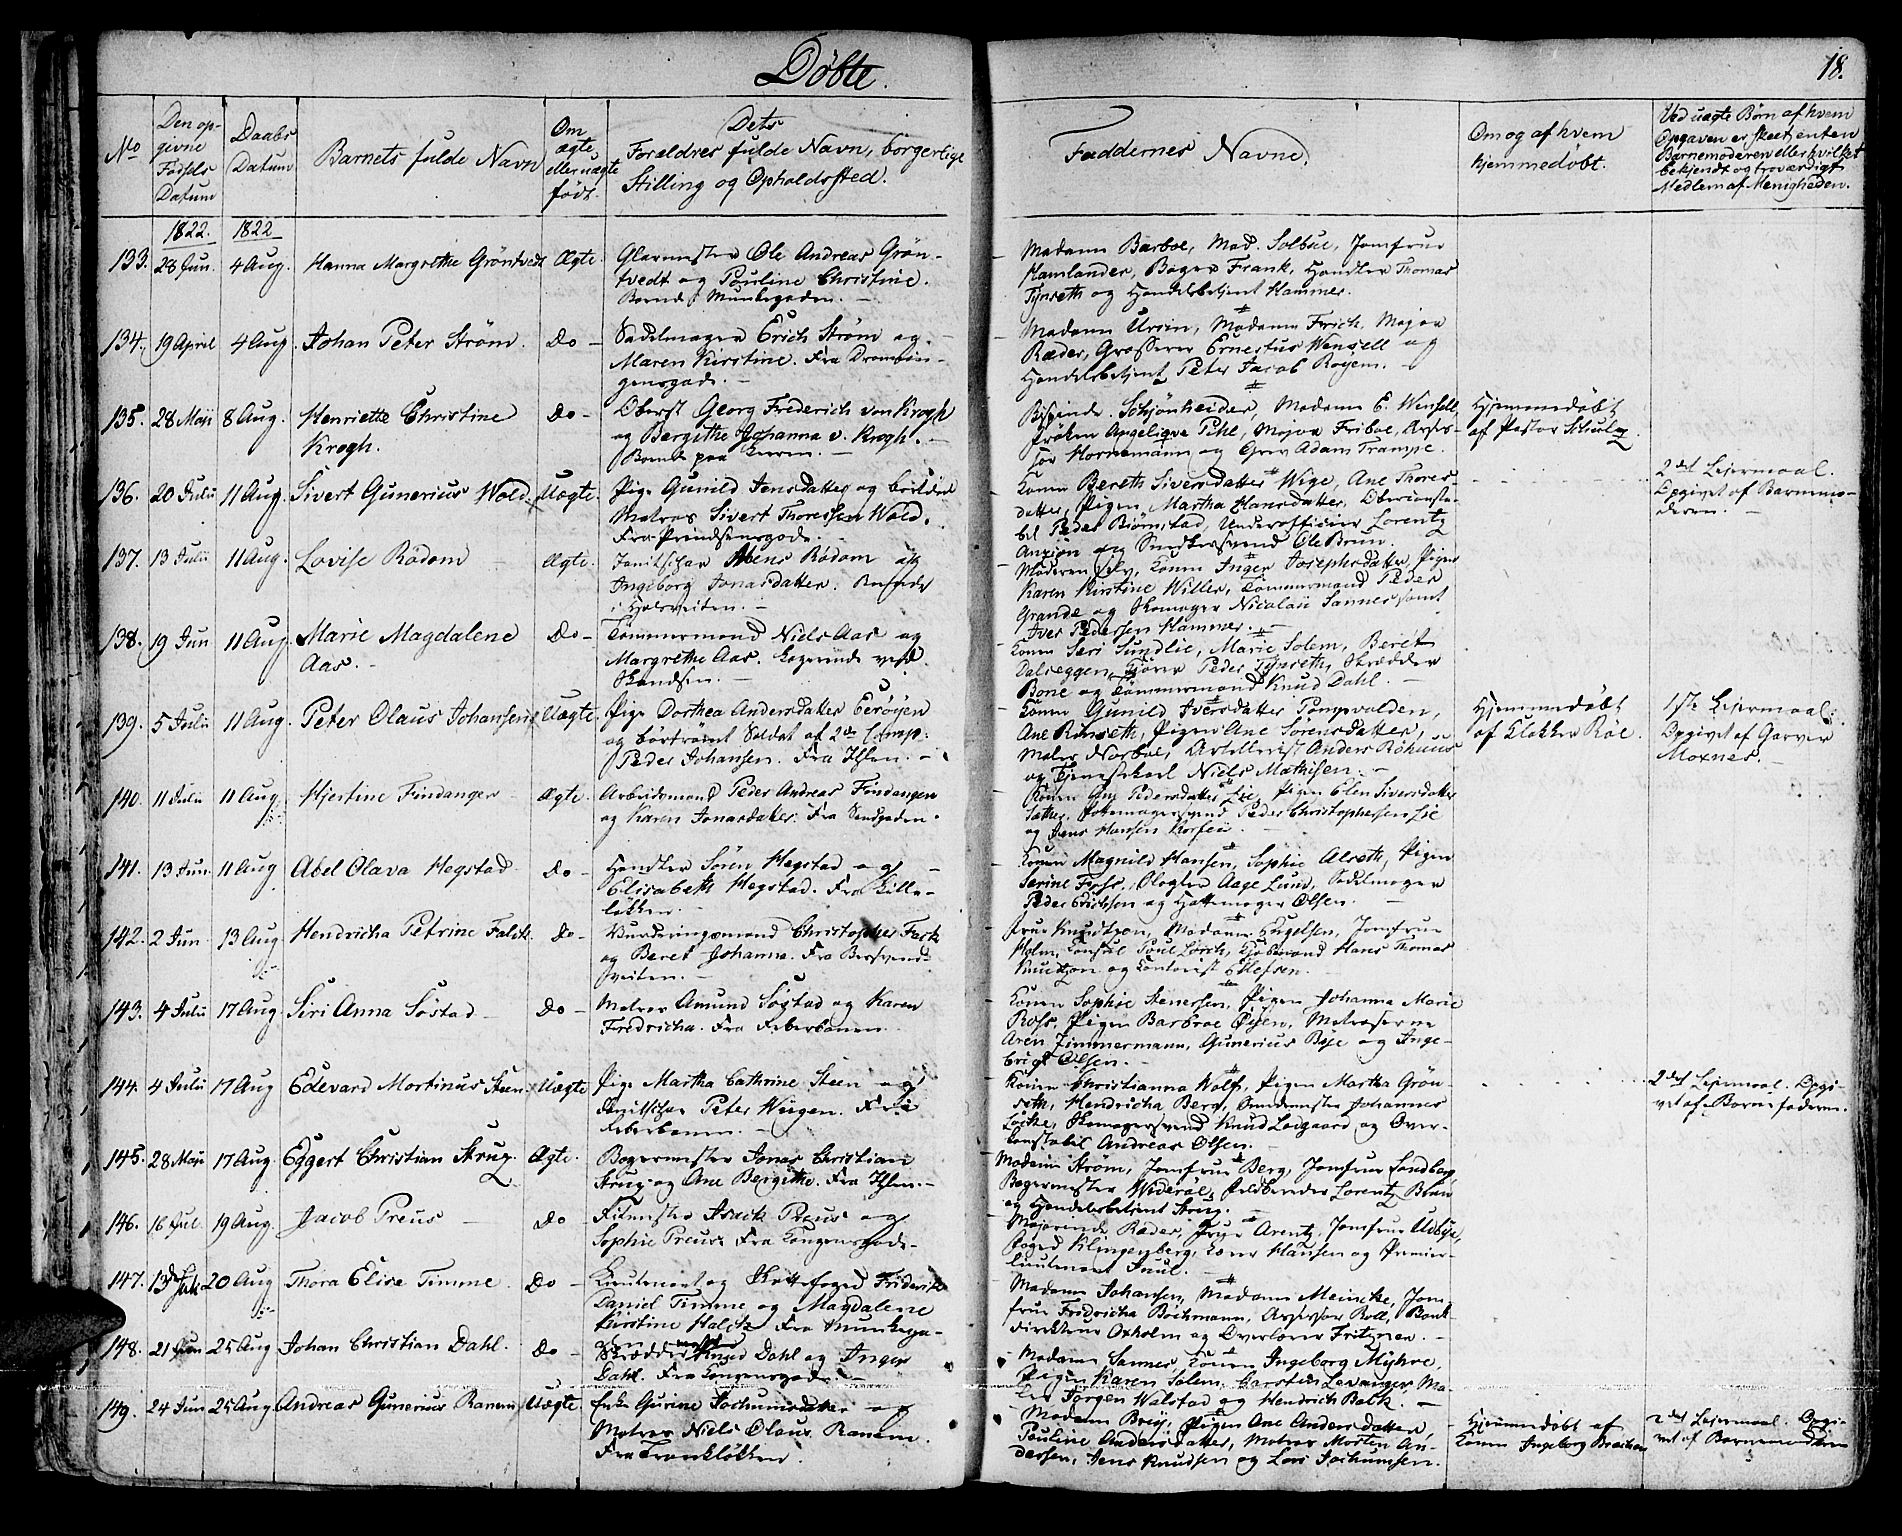 Döbte.
18.
No
Den op-
givne
Födsels
Datum
Daabs
Datum
Barnets fulde Navn
Om
ægte
eller uægte
födt.
Dets
Forældres fulde Navn, borgerlige
Stilling og Opholdssted.
Faddernes Navne.
Om og af hvem
hjemmedöbt.
Ved uægte Börn af hvem
Opgaven er skeet, enten
Barnemoderen eller hvilket
bekjendt og troværdigt
Medlem af Menigheden.
1822. 1822
133. 28 Jun. 4 Aug. Hanna Margrethe Gröntvedt Ægte.
Glarmester Ole Andreas Grön-
tvedt og Pauline Christine.
Boende i Munkegaden.
Madame Barboe, Mad. Solbue, Jomfrue
Hamlander, Bager Frank, Handler Thomas
Tynseth og Handelsbetjent Hammer.
134. 19 April 4 Aug. Johan Peter Ström. Do
Sadelmager Erich Ström og
Maren Kirstine. Fra Dronnin-
gensgade.
Madame Ursin, Madame Frich, Major
Ræder, Grosserer Ernestus Wensell og
Handelsbetjent Peter Jacob Royem.
135. 28 Maji 8 Aug. Henriette Christine
Krogh. Do
Oberst Georg Frederich von Krogh
og Bergithe Johanna v. Krogh.
Boende paa Leeren.
Bispinde Schjönheider, Madame E. Wensell,
Fröken Angeliqve Pihl, Major Friboe, Asses-
sor Hornemann og Grev Adam Trampe.
Hjemmedöbt
af Pastor Schulz
136. 20 Julii 11 Aug. Sivert Gunerius Wold Uægte.
Pige Gunild Jensdatter og
Matros Sivert Thoressen Wold.
Fra Prindsensgade.
Konen Bereth Siversdatter Wige, Ane Thores-
datter, Pigen Martha Hansdatter, Oberconsta-
bel Peder Biörnstad, Underofficier Lorentz
Anzion og Snedkersvend Ole Brun.
2det Leiermaal.
Opgivet af Barnemo-
deren.
137. 13 Julii 11 Aug. Lovise Rödom Ægte.
Janitschar Mons Rödom og
Ingeborg Jonasdatter. Boende
i Hospveiten.
Moderen selv, Konen Inger Josephsdatter, Pigen
Karen Kirstine Willer, Tömmermand Peder
Grande og Skomager Nicolai Sannes samt
Iver Pedersen Hammer.
138. 19 Jun 11 Aug. Marie Magdalene
Aas. Do
Tömmermand Niels Aas og
Margrethe Aas. Logerende ved
Skandsen.
Konen Seri Sundlie, Marie Solem, Beret
Dalseggen, Peder Tynseth, Skrædder
Bone og Tömmermand Knud Dahl.
139. 5 Julii 11 Aug. Peter Olaus Johansen Uægte
Pige Dorthea Andersdatter Eeröyen
og bortrømt Soldat af 2det Comp:
Peder Johansen. Fra Ihlen.
Konen Gunild Iversdatter Tempvolden,
Ane Rönseth, Pigen Ane Sörensdatter,
Maler Norboe, Artillerist Anders Röhuus
og Tjenestekarl Niels Mathisen.
Hjemmedöbt
af Klokker Röe.
1ste Leiermaal.
Opgivet af Garver
Moxnes.
140. 11 Julii 11 Aug. Hjertine Findanger Ægte
Arbeidsmand Peder Andreas Findanger
og Karen Jonasdatter. Fra Sandgaden.
Konen Ane Pedersdatter Lie, Pigen Elen Siversdatter
Sæther, Skomagersvend Peder Christophersen Lie
og Jens Hansen Korsen.
141. 13 Jun. 11 Aug Abel Olava Hegstad Do
Handler Sören Hegstad og
Elisabeth Hegstad. Fra Lille-
løkken.
Konen Magnild Hansen, Sophie Alseth, Pigen
Serine Foss, Slagter Aage Lund, Sadelmager
Peder Erichsen og Hattemager Olsen.
142. 2 Jun 13 Aug Hendricha Petrine Falck Do
Vurderingsmand Christopher Falck
og Beret Johanna. Fra Bersvend-
sveiten.
Frue Knudtzon, Madame Engelsen, Jomfrue
Holm, Consul Poul Lorch, Kjöbmand Hans Thomas
Knudtzon og Contorist Ellefsen.
143. 4 Julii 17 Aug. Siri Anna Söstad Do
Matros Amund Söstad og Karen
Fredricha. Fra Reberbanen.
Konen Sophie Stenersen, Pigen Johanna Marie
Ross, Pigen Barbroe Öyen, Matroserne
Aren Zimmermann, Gunerius Boje og Inge-
brigt Olsen.
144. 4 Julii 17 Aug Edevard Martinus Steen Uægte
Pige Martha Cathrine Steen og
Janitschar Peter Wiigen. Fra
Reberbanen.
Konen Christianna Wolf, Pigen Martha Grön-
seth, Hendricha Berg, Snedkermester Johannes
Löcke, Skomagersvend Knud Lövgaard og Over-
konstabel Andreas Olsen.
2det Leiermaal. Opgi-
vet af Barnefaderen.
145. 28 Maji 17 Aug. Eggert Christian Krug. Ægte.
Bagermester Jonas Christian
Krug og Ane Bergithe. Fra Ihlen.
Madame Ström, Jomfrue Berg, Jomfrue Sandberg,
Bagermester Wideröe, Feldbereder Lorentz Brun
og Handelsbetjent Krug.
146. 16 Jul. 19 Aug. Jacob Preus Do
Filemester Isach Preus og
Sophie Preus. Fra Kongensgade.
Majorinde Ræder, Frue Arentz, Jomfrue Udbye,
Foged Klingenberg, Hansen og Premier-
lieutenant Juul.
147. 13de Juli 20 Aug Thora Elise Timme. Do
Lieutenant og Skattefoged Friderich
Daniel Timme og Magdalene
Kirstine Holtz. Fra Munkega-
den
Madame Johansen, Madame Meincke, Jom-
frue Fredricha Bochmann, Assessor Roll, Bank-
direkteur Oxholm og Overlærer Fritzner.
148. 21 Jun 25 Aug Johan Christian Dahl. Do
Skrædder Knud Dahl og Inger
Dahl. Fra Kongensgade.
Madame Sannes, Konen Ingeborg Myhre,
Pigen Karen Solem, Carsten Levanger, Ma-
ler Jörgen Walstad og Hendrich Balk.
149. 24 Jun 25 Aug. Andreas Gunerius Ranem Uægte
Enke Gurine Jochumsdatter og
Matros Niels Olaus Ranem.
Fra Frankløkken.
Madame Brey, Pigen Ane Andersdatter,
Pauline Andersdatter, Matros Morten An-
dersen, Jens Knudsen og Lars Jochumsen.
Hjemmedöbt af
Konen Ingeborg
2det Leiermaal. Opgi-
vet af Barnemoderen